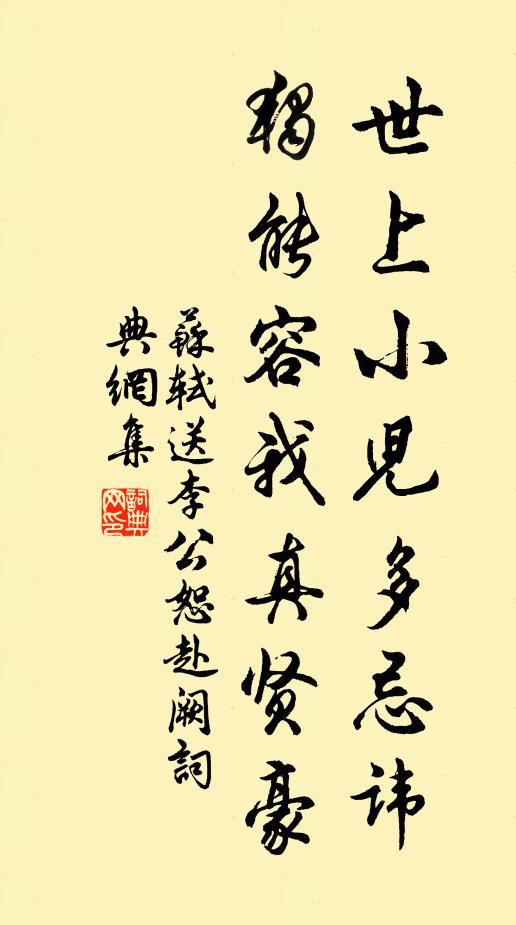 世上小児多忌讳
獨能容我真贤豪
蘇軾送李公恕赴阙詞
典網集
詞典网印